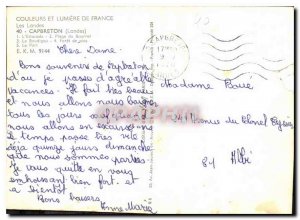 COULEURS ET LUMIÈRE DE FRANCE
Les Landes
40 - CAPBRETON (Landes)
1. L'Estacade - 2. Plage du
3. Le Boudigau - 4. Forêt de pins
5. Le Port
E. K. M. 9144
Chère Dame
Bons souvenirs de Capbreton
d'où je passes d'agréable
vacances. Il fait très beau
et nous allons nous baigner
tous les jours
nous allons en excursion
le temps passe très vite
déjà quinze jours dimanche
que nous sommes parties
Je vous quitte en vous
embrassant bien fort et
a bientôt.
Bons baisers
Anne-Marie
Madame
Avenue du Colonel
81 Albi